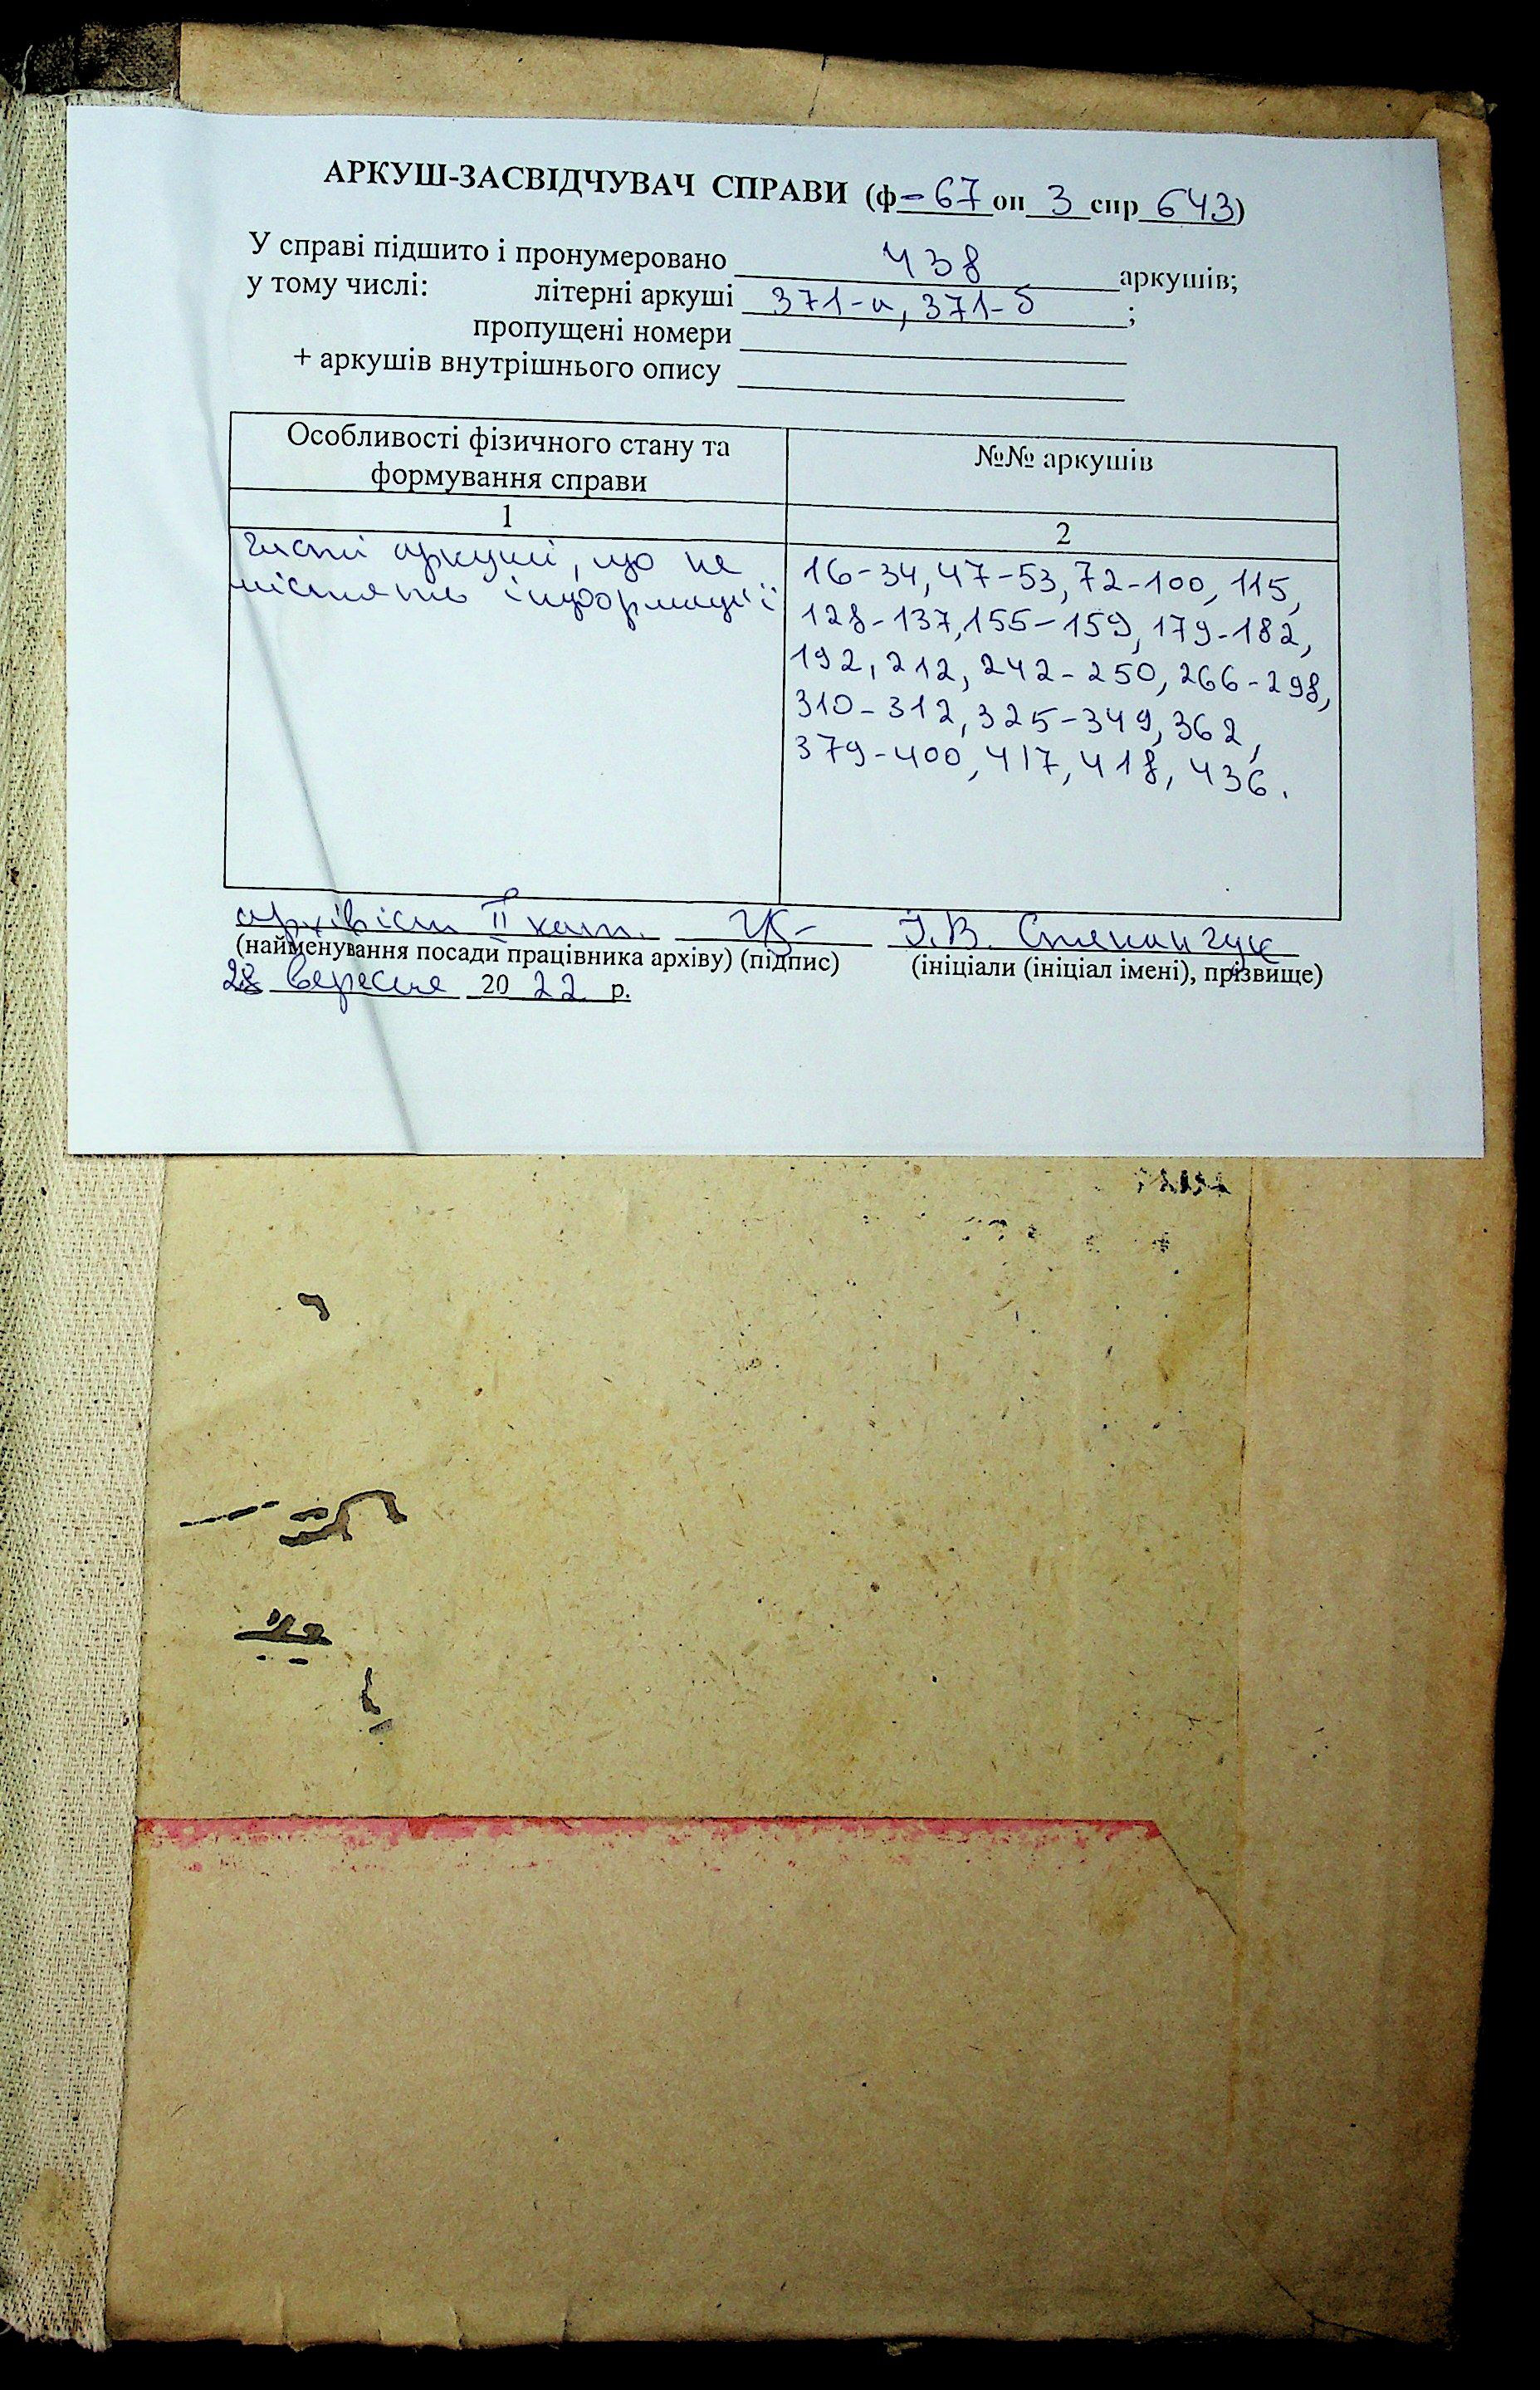 АРКУШ-ЗАСВІДЧУВАЧ СПРАВИ (ф - 67 оп 3 спр 643)
У справі підшито і пронумеровано 438 аркушів;
у тому числі: літерні аркуші 371-а, 371-б ;
пропущені номери
+ аркушів внутрішнього опису
Особливості фізичного стану та
формування справи
№№ аркушів
1
2
чисті аркуші, що не
містять інформації
16-34, 47-53, 72-100, 115,
128-137, 155-159, 179-182,
192, 212, 242-250, 266-298,
310-312, 325-349, 362,
379-400, 417, 418, 436.
архівіст II кат. І.В. Степанчук
(найменування посади працівника архіву) (підпис) (ініціали (ініціал імені), прізвище)
28 вересня 2022 р.